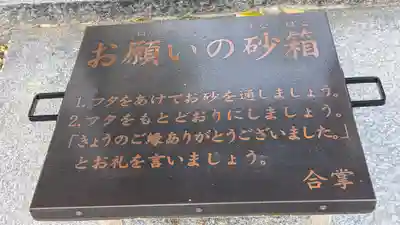 お願いの砂箱
1.フタをあけてお砂を通しましょう。
2.フタをもとどおりにしましょう。
「きょうのご縁ありがとうございました。」
とお礼を言いましょう。
合掌